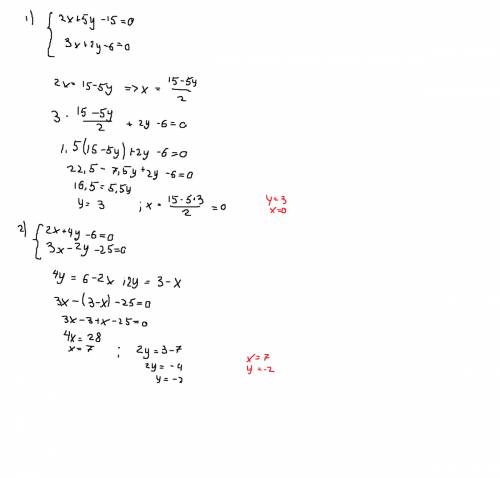 1) { 2x+5y-15=0
3x+2y-6=0
2x=15-5y => x = (15-5y)/2
3 · (15-5y)/2 + 2y-6=0
1,5(15-5y)+2y-6=0
22,5-7,5y+2y-6=0
16,5=5,5y
y=3 ; x = (15-5·3)/2 = 0
y=3
x=0
2) { 2x+4y-6=0
3x-2y-25=0
4y=6-2x, 2y=3-x
3x-(3-x)-25=0
3x-3+x-25=0
4x=28
x=7 ; 2y=3-7
2y=-4
y=-2
x=7
y=-2